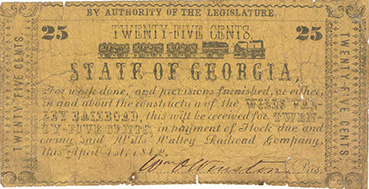 BY AUTHORITY OF THE LEGISLATURE.
25 TWENTY-FIVE CENTS. 25
STATE OF GEORGIA,
For work done, and provisions furnished, or either,
in and about the construction of the WILLS VAL-
LEY RAILROAD, this will be received for TWEN-
TY-FIVE CENTS, in payment of Stock due and
owing said Wills Valley Railroad Company,
this April 1st, 1862.
Wm O Winston Pres.
TWENTY FIVE CENTS.
TWENTY FIVE CENTS